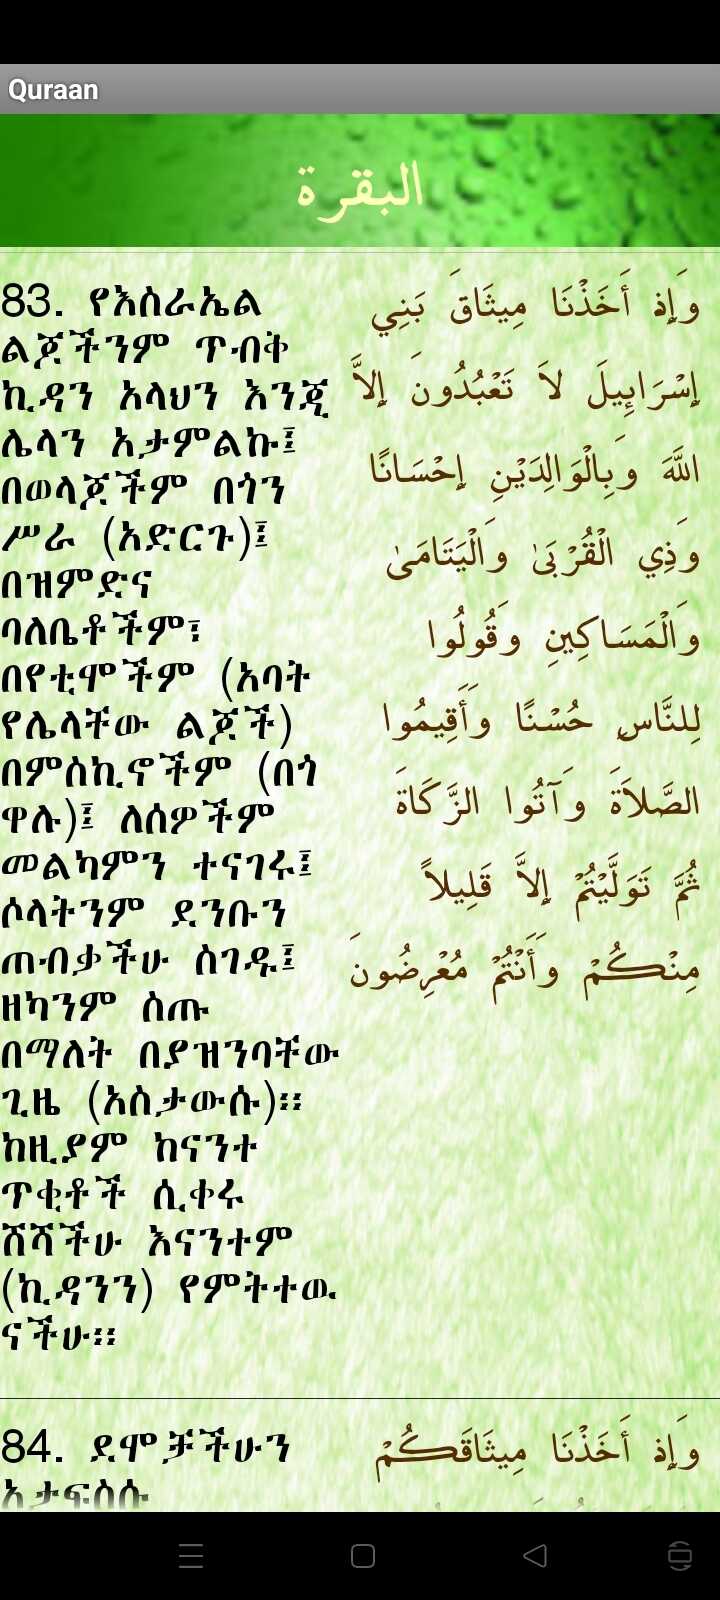 Quraan
البقرة
83. የእስራኤል
ልጆችንም ጥብቅ
ኪዳን አላህን እንጂ
ሌላን አታምልኩ፤
በወላጆችም በጎን
ሥራ (አድርጉ)፤
በዝምድና
ባለቤቶችም፣
በየቲሞችም (አባት
የሌላቸው ልጆች)
በምስኪኖችም (በጎ
ዋሉ)፤ ለሰዎችም
መልካምን ተናገሩ፤
ሶላትንም ደንቡን
ጠብቃችሁ ስገዱ፤
ዘካንም ስጡ
በማለት በያዝንባቸው
ጊዜ (አስታውሱ)፡፡
ከዚያም ከናንተ
ጥቂቶች ሲቀሩ
ሸሻችሁ እናንተም
(ኪዳንን) የምትተዉ
ናችሁ፡፡
وَإِذْ أَخَذْنَا مِيثَاقَ بَنِي
إِسْرَائِيلَ لاَ تَعْبُدُونَ إِلاَّ
اللَّهَ وَبِالْوَالِدَيْنِ إِحْسَانًا
وَذِي الْقُرْبَىٰ وَالْيَتَامَىٰ
وَالْمَسَاكِينِ وَقُولُوا
لِلنَّاسِ حُسْنًا وَأَقِيمُوا
الصَّلاَةَ وَآتُوا الزَّكَاةَ
ثُمَّ تَوَلَّيْتُمْ إِلاَّ قَلِيلاً
مِنْكُمْ وَأَنْتُمْ مُعْرِضُونَ
84. ደሞቻችሁን
አታፍስሱ
وَإِذْ أَخَذْنَا مِيثَاقَكُمْ